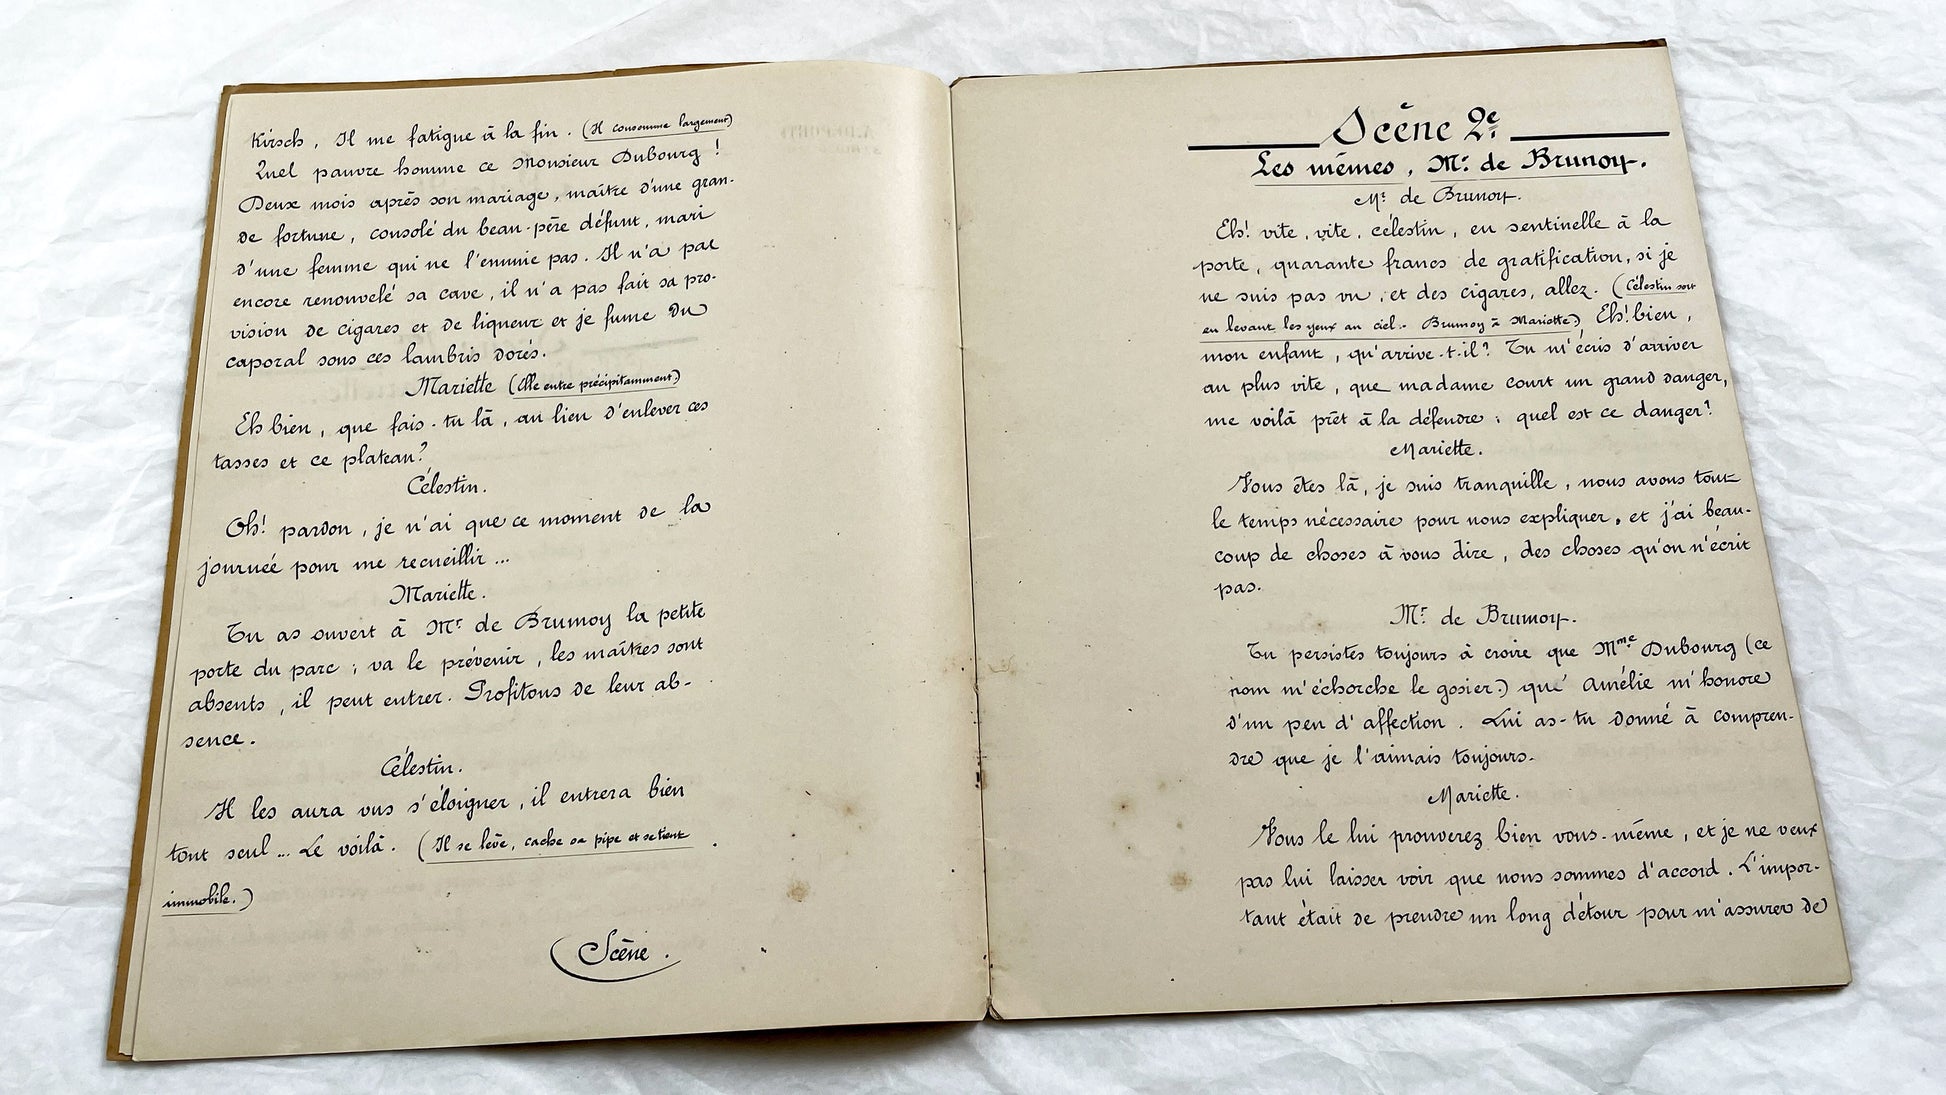 Kirsch, Il me fatigue à la fin. (Il consomme largement)
Quel pauvre homme ce Monsieur Dubourg !
Deux mois après son mariage, maître d'une gran-
de fortune, consolé du beau-père défunt, mari
d'une femme qui ne l'ennuie pas. Il n'a pas
encore renouvelé sa cave, il n'a pas fait sa pro-
vision de cigares et de liqueur et je fume du
caporal sous ces lambris dorés.
Mariette (Elle entre précipitamment.)
Eh bien, que fais-tu là, au lieu d'enlever ces
tasses et ce plateau?
Célestin.
Oh! pardon, je n'ai que ce moment de la
journéé pour me recueillir ...
Mariette.
Tu as ouvert à Mr de Brumoy la petite
porte du parc ; va le prévenir, les maîtres sont
absents, il peut entrer. Profitons de leur ab-
sence.
Célestin.
Il les aura vus s'éloigner, il entrera bien
tout seul ... Le voilà. (Il se lève, cache sa pipe et se tient
immobile.)
(Scène.
Scène 2e
Les mêmes, Mr. de Brunoy.
Mr. de Brunoy.
Eh! vite, vite, célestin, en sentinelle à la
porte, quarante francs de gratification, si je
ne suis pas vu, et des cigares, allez. (Célestin sort
en levant les yeux au ciel.- Brumoy à Mariette.) Eh! bien,
mon enfant, qu'arrive-t-il? Tu m'écris d'arriver
au plus vite, que madame court un grand danger,
me voilà prêt à la défendre ; quel est ce danger?
Mariette.
Vous êtes là, je suis tranquille, nous avons tout
le temps nécessaire pour nous expliquer, et j'ai beau-
coup de choses à vous dire, des choses qu'on n'écrit
pas.
Mr. de Brumoy.
Tu persistes toujours à croire que Mme Dubourg (ce
nom m'écorche le gosier.) que Amélie m'honore
d'un peu d'affection. Lui as-tu donné à compren-
dre que je l'aimais toujours.
Mariette.
Vous le lui prouverez bien vous-même, et je ne veux
pas lui laisser voir que nous sommes d'accord. L'impor-
tant était de prendre un long détour pour m'assurer de